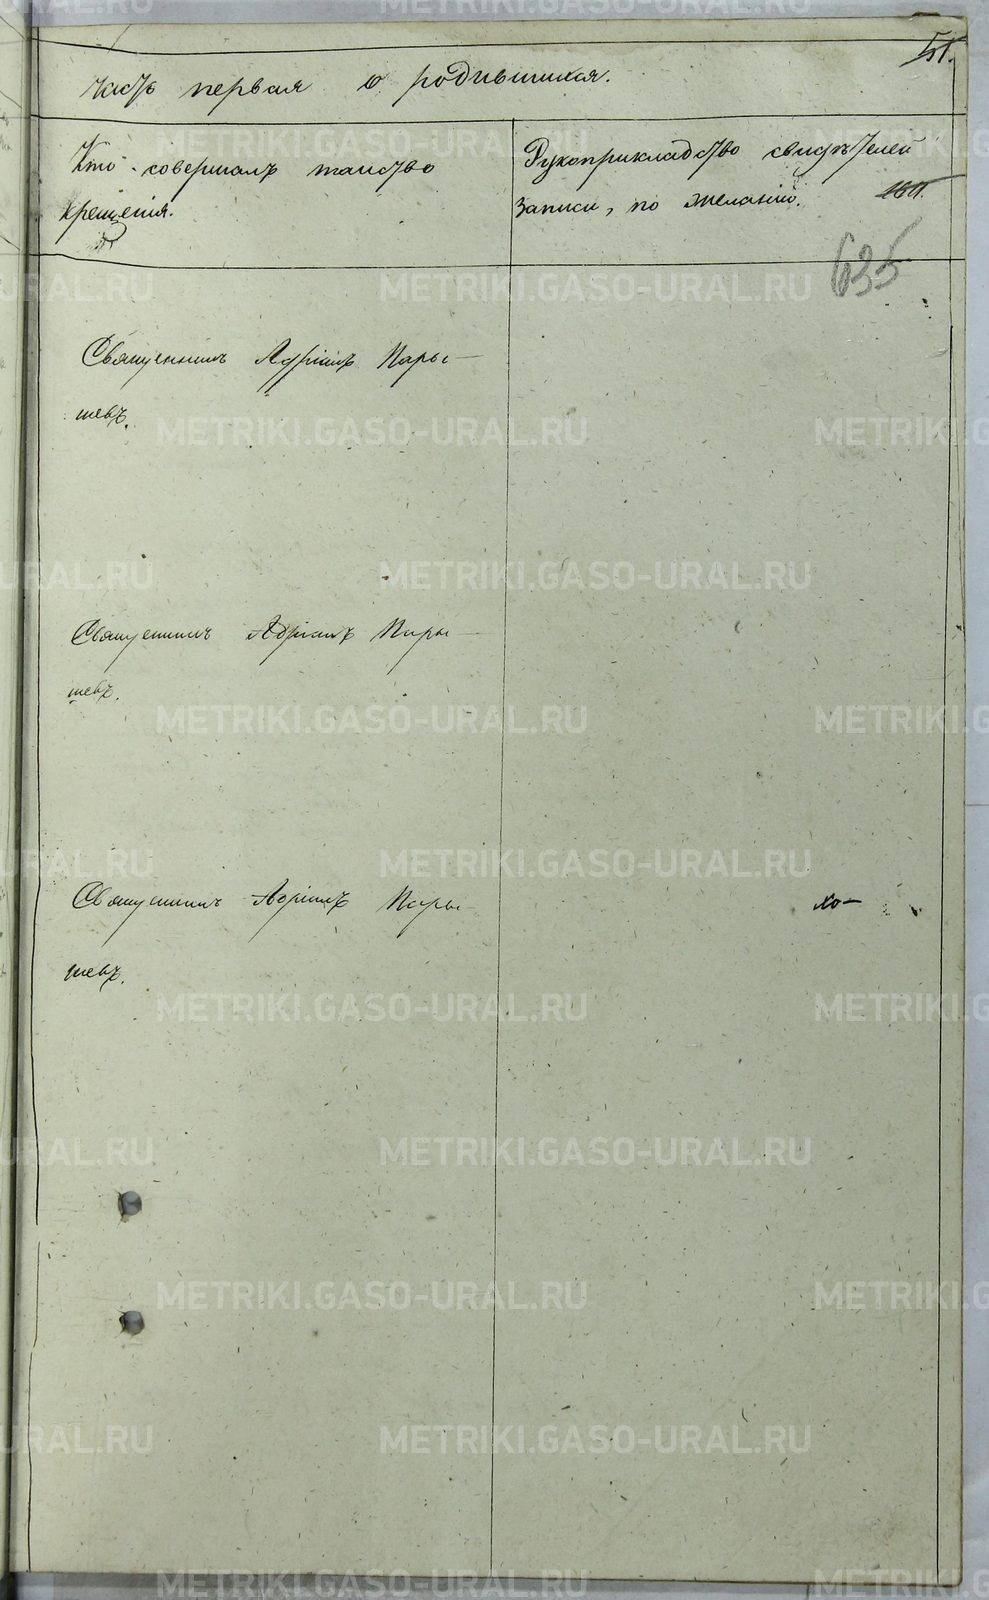 51.
Часть первая о родившихся.
Кто совершалъ таинство
крещенія.
Рукоприкладство свидѣтелей
записи, по желанію.
635
Священникъ Адріанъ Пары-
шевъ.
Священникъ Адріанъ Пары-
шевъ.
Священникъ Адріанъ Пары-
шевъ.
METRIKI.GASO-URAL.RU